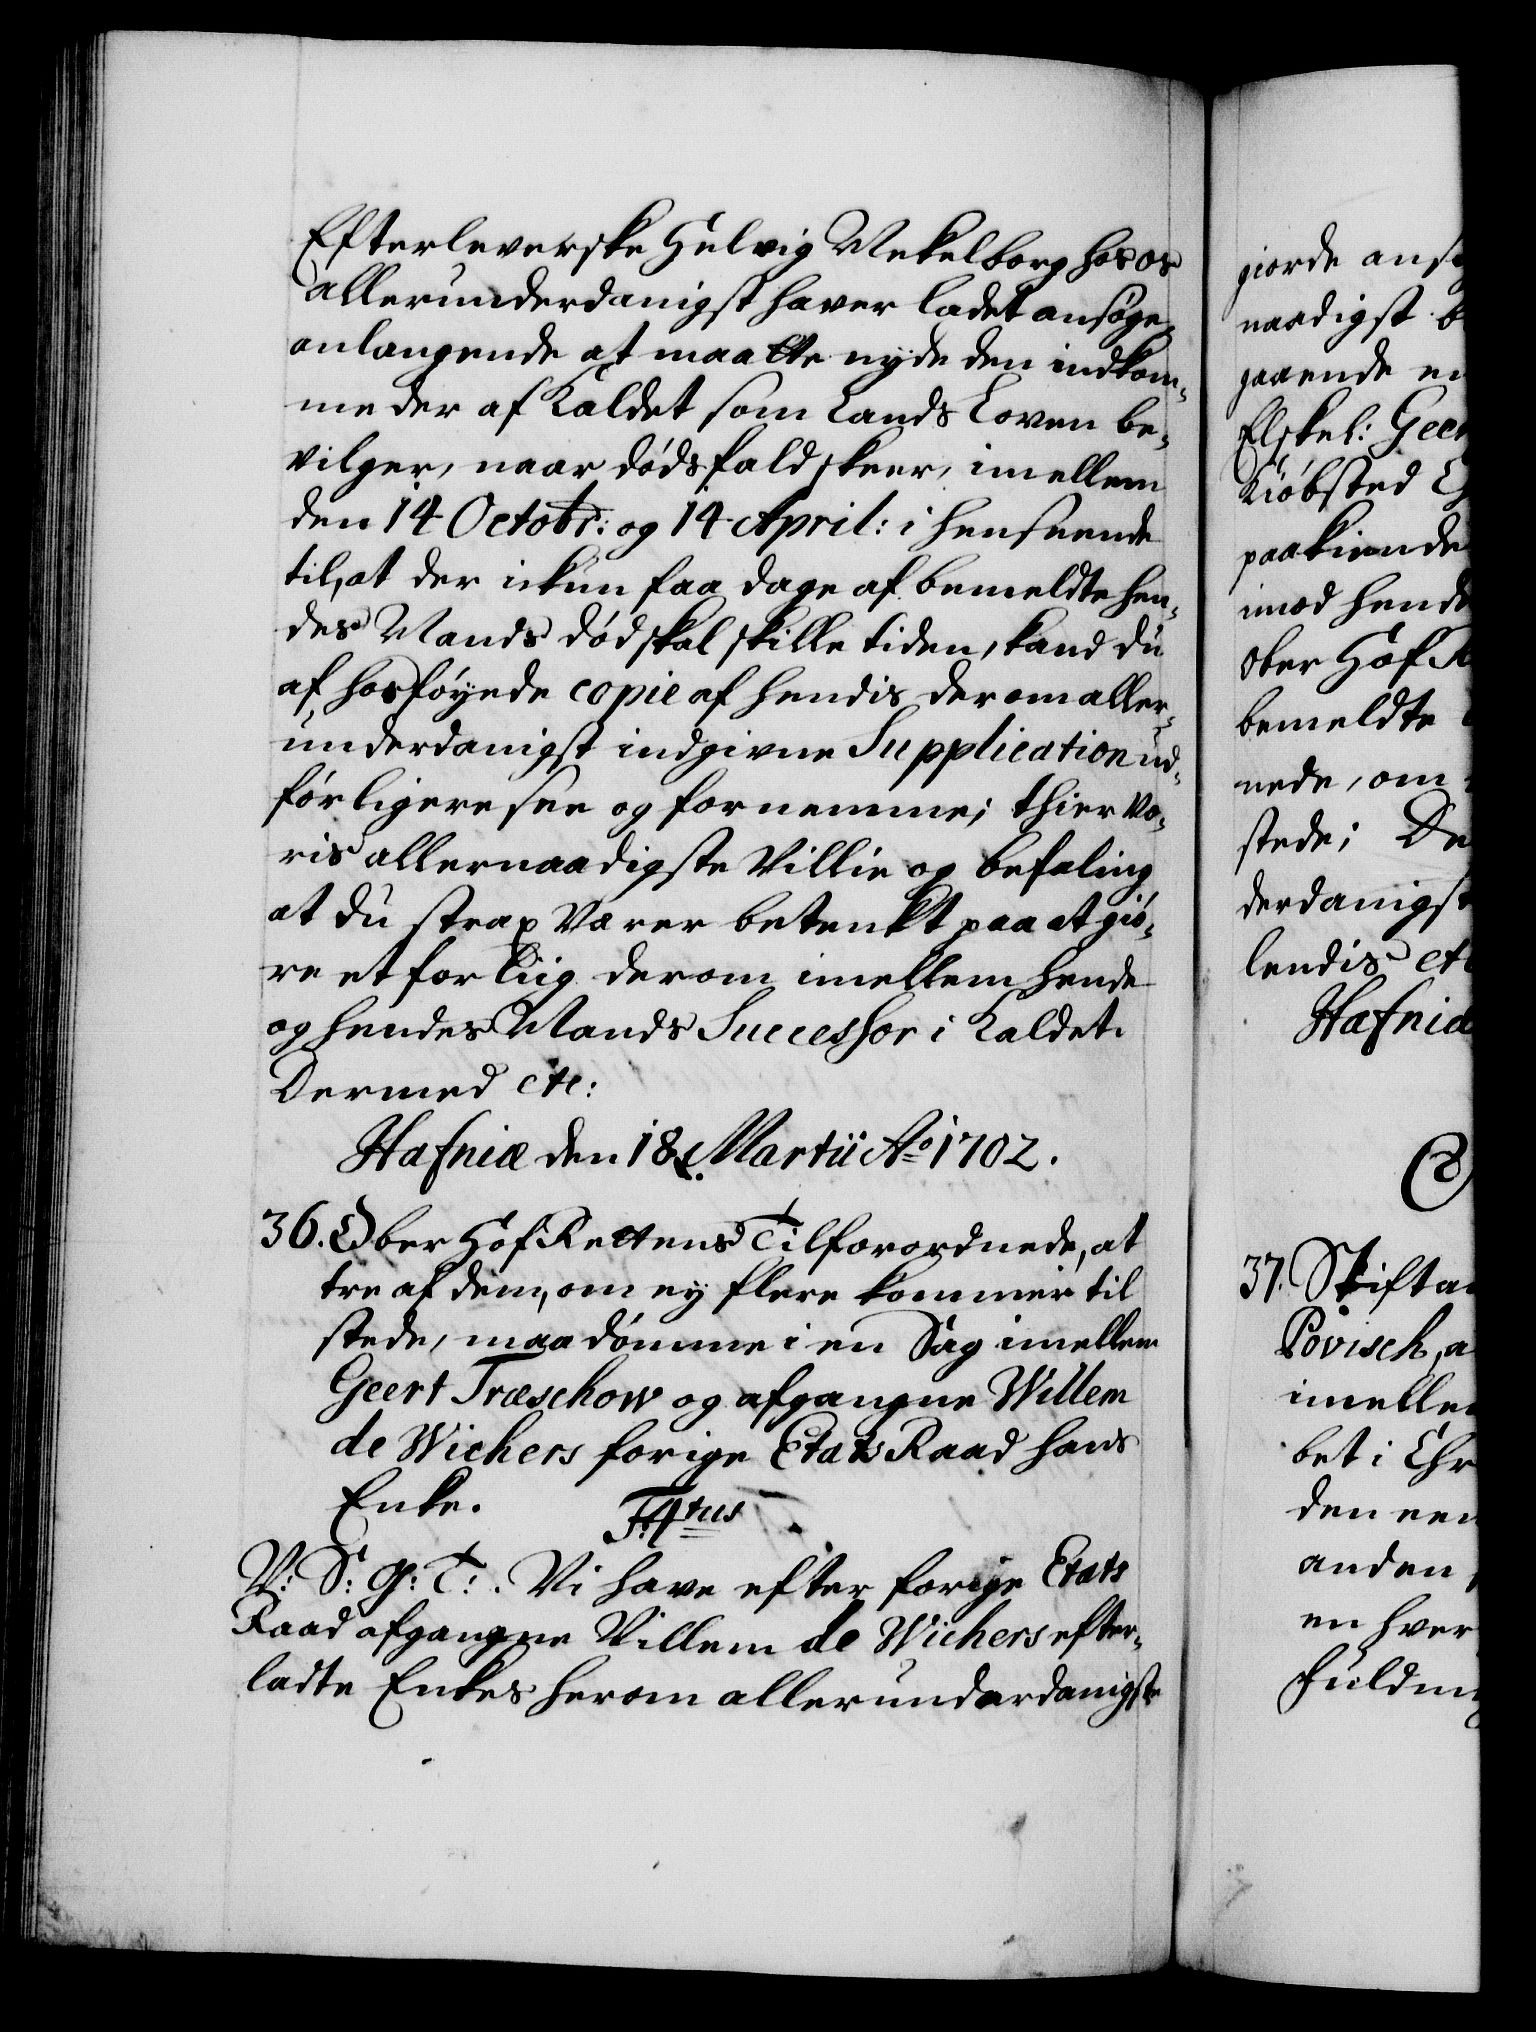 Efterleverske Helvig Mekelborg hos os
allerunderdanigst haver ladet ansøge,
anlangende at maatte nyde den indkom-
me der af Kaldet som Lands Loven be-
vilger, naar dødsfald skeer, imellem
den 14 Octobr: og 14 April: i henseende
til, at der ickun faa dage af bemeldte hen-
des Mands død skal skille tiden, kand du
af hosføyede copie af hendis derom aller-
underdanigst indgivne Supplication ud-
førligere see og fornemme; thi er Vo-
ris allernaadigste Villie og befaling
at du strax Værer betenkt paa at giø-
re et forliig derom imellem hende
og hendes Mands Successor i Kaldet.
Dermed etc:
Hafniæ den 18 Martii Ao 1702.
36. Ober Hof Rettens Tilforordnede, at
tre af dem, om ey flere kommer til
stede, maa dømme i en Sag imellem
Geert Træschow og afgangne Willem
de Wichers forige Etats Raad hans
Enke.
F. 4tus
V: S: G: T: . Vi have efter forige Etats
Raad afgangne Villem de Wichers efter-
ladte Enkes herom allerunderdanigste
giorde ansø
naadigst b
gaaende en
Elskel: Geer
Kiøbsted
paakiende
imod hende
Ober Hof R
bemeldte
nede, om
stede; De
derdanigst
lendis etc
Hafniæ
37. Stiftam
Povisch, a
imellem
bet i Chr
den een
anden
en hver
fuldm